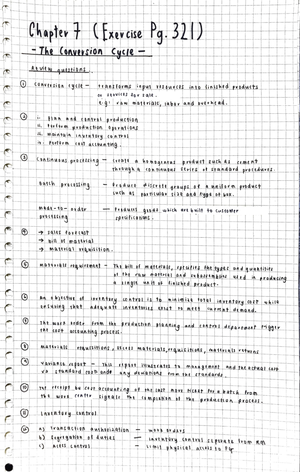 Chapter 7 (Exercise Pg. 321)
- The Conversion Cycle -
Review questions.
① Conversion cycle - transforms input resources into finished products
or services for sale.
e.g: raw materials, labor and overhead.
② i. plan and control production
ii. perform production operations
iii. maintain inventory control
iv. perform cost accounting.
③ Continuous processing - create a homogenous product such as cement
through a continuous series of standard procedures.
batch processing - Produce discrete groups of a uniform product
such as particular size and type of
made-to-order processing - Produces goods which are built to customer
specifications.
④ → sales forecast
→ bill of material
→ material requisition.
⑤ materials requirement - The bill of materials, specifies the types and quantities
of the raw materials and subassemblies used in producing
a single unit of finished product.
⑥ An objective of inventory control is to minimize total inventory cost while
ensuring that adequate inventories exist to meet current demand.
⑦ The work order from the production planning and control department trigger
the cost accounting process.
⑧ materials requisitions, excess materials requisitions, materials returns
⑨ variance report - This report to management and the actual cost
vs standard cost and any deviations from the standards.
⑩ The receipt by cost accounting of the last move ticket for a batch from
the work center signals the completion of the production process.
⑪ Inventory control
⑫ a) transaction authorization - work orders
b) segregation of duties - inventory control separate from RM
c) access control - limit physical access to FG